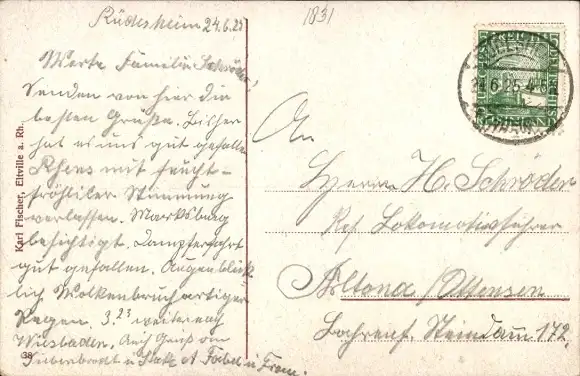 Rüdesheim 24.6.25
1831
Werte Familie Schröder!
Senden von hier die
besten Grüße. Bisher
hat es uns gut gefallen
Rhens mit feucht-
fröhlicher Stimmung
verlassen. Marksburg
besichtigt. Dampferfahrt
gut gefallen. Augenblick-
lich Wolkenbruchartiger
Regen. 3.23 weiter nach
Wiesbaden. Auch Gruß von
u. Frau.
Karl Fischer, Eltville a. Rh.
38
DEUTSCHES REICH
24.6.25.4-5
An
Herrn H. Schröder
Res. Lokomotivführer
Altona/Ottensen
Bahrenf. Steindamm 172.